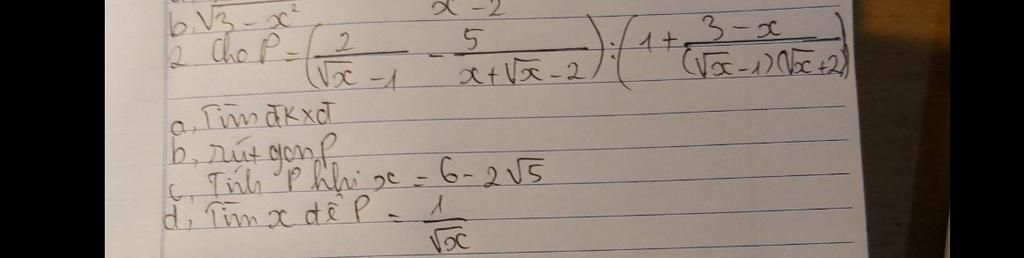 b, √3 - x² x - 2
2 Cho P = (2/(√x - 1) - 5/(x + √x - 2)) : (1 + (3 - x)/((√x - 1)(√x + 2)))
a, Tìm đkxđ
b, rút gọn P
c, Tính P khi x = 6 - 2√5
d, Tìm x để P = 1/√x